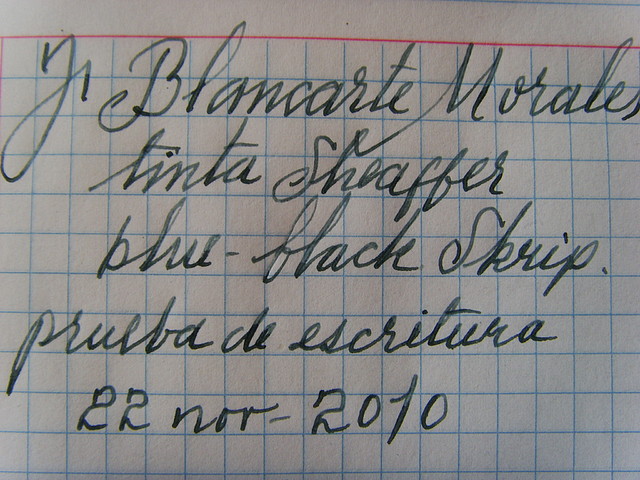 J. Blancarte Morales
tinta Sheaffer
blue-black Skrip.
prueba de escritura
22 nov- 2010